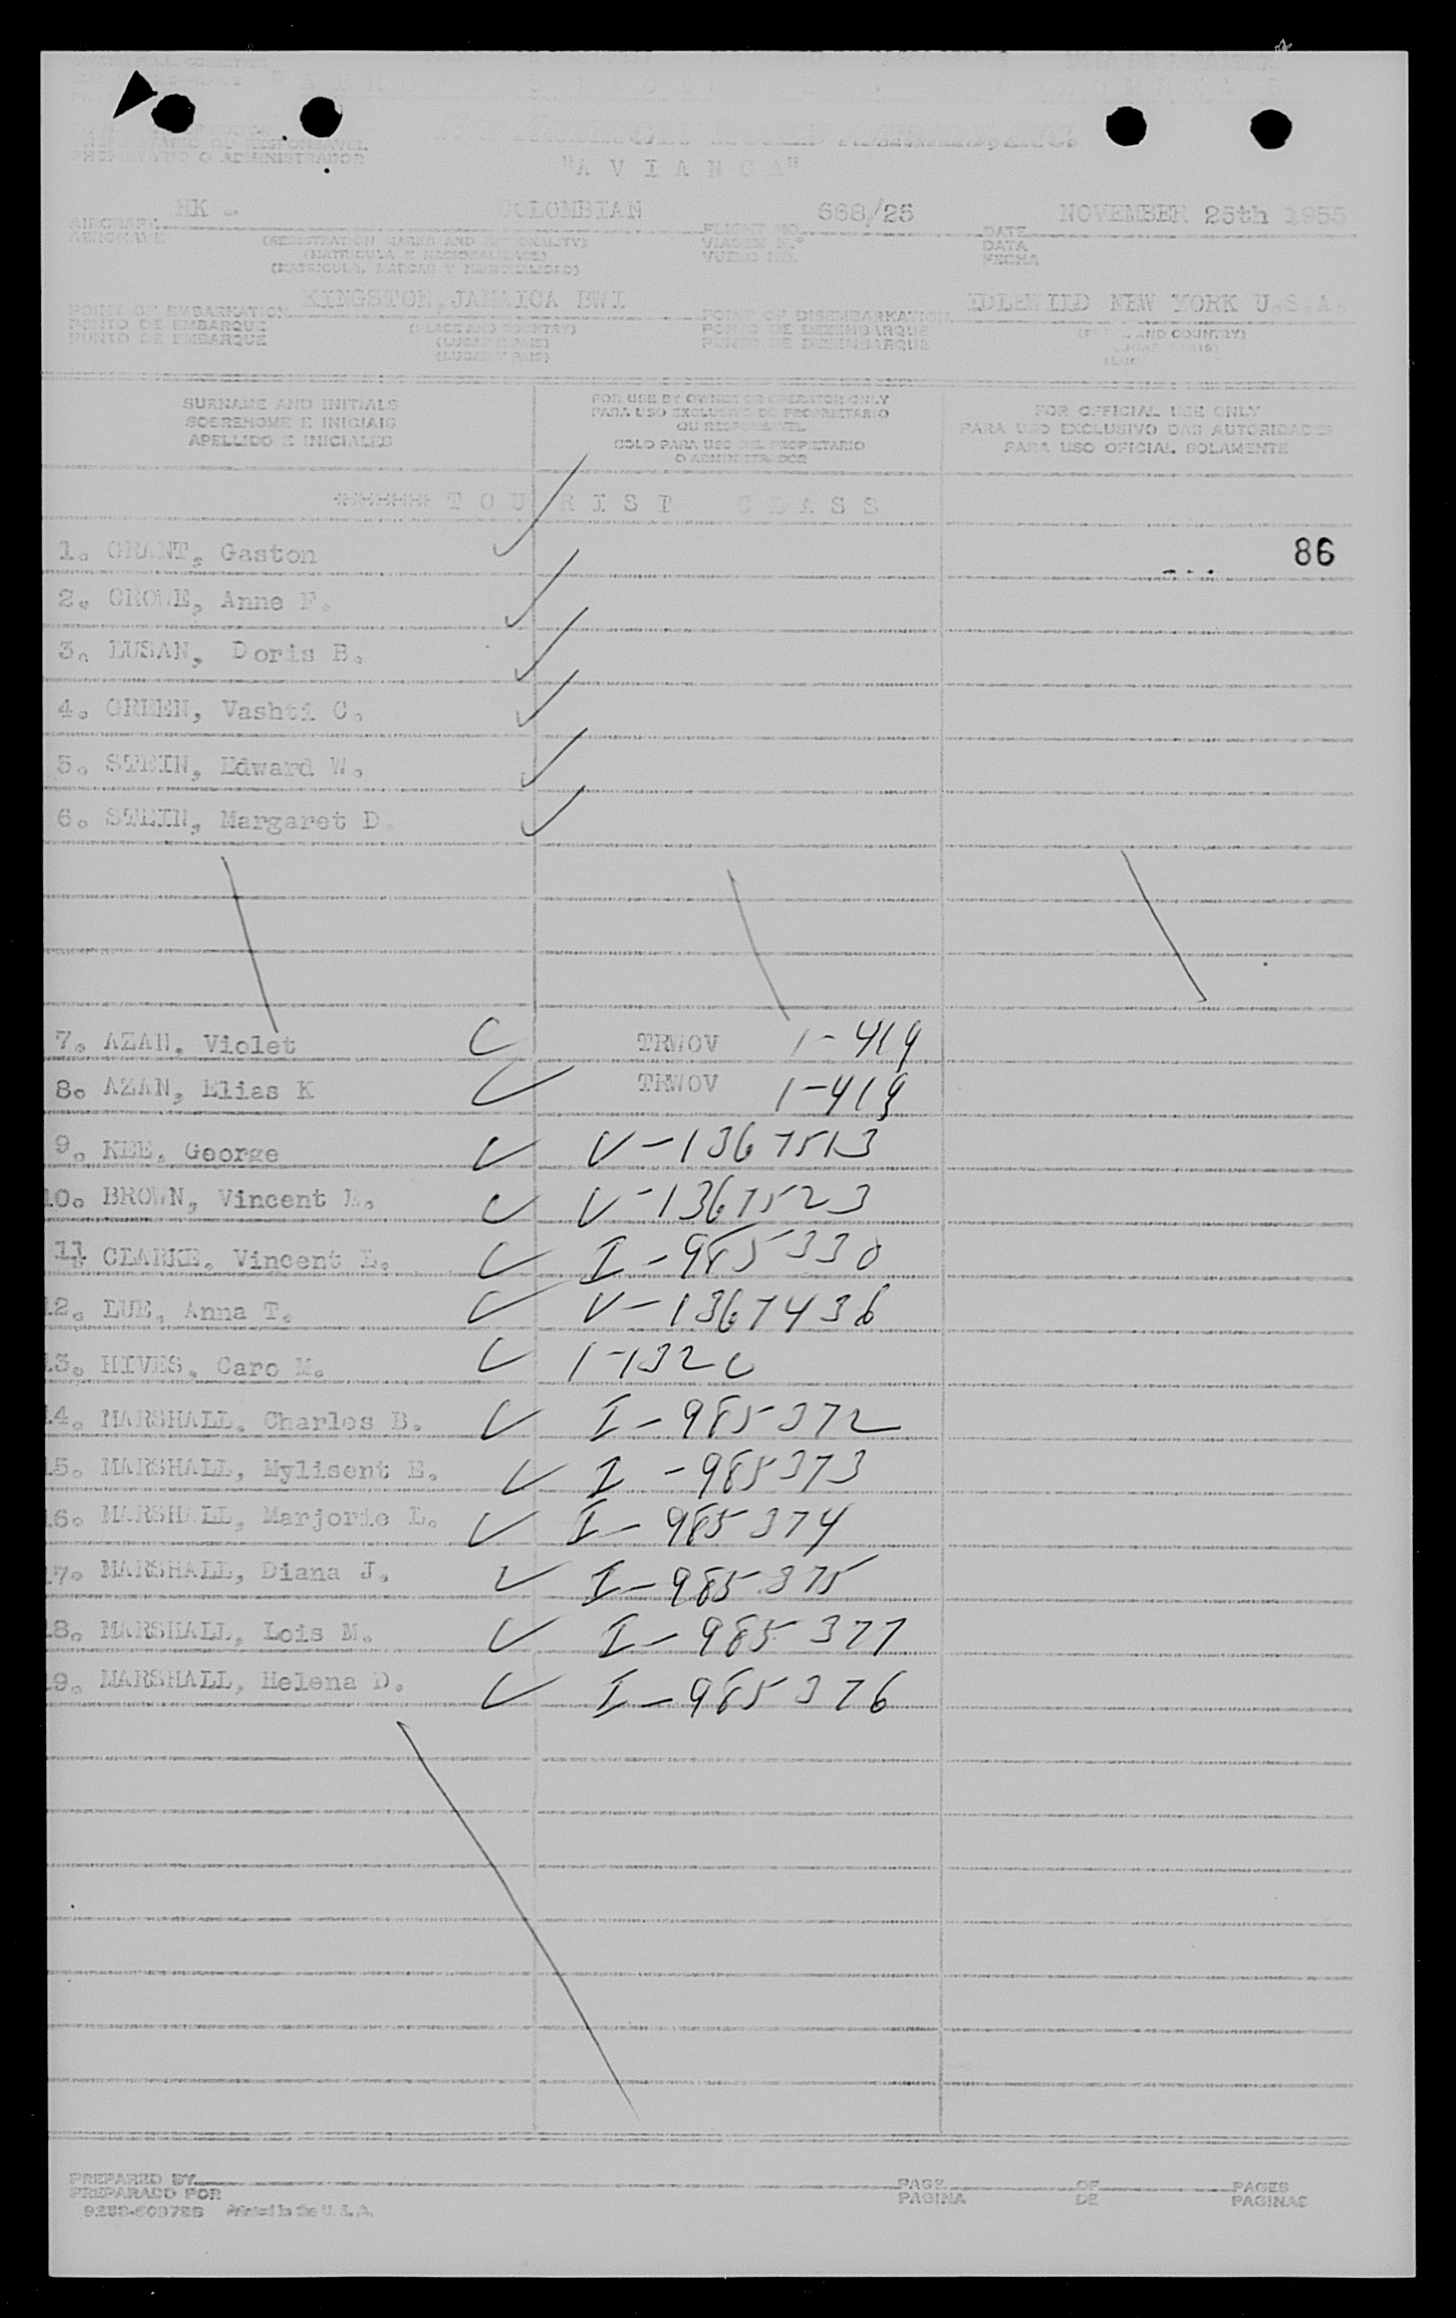 OWNER OR RESPONSAVEL
PROPIETARIO O ADMINISTRADOR
"A V I A N C A"
AIRCRAFT HK - COLOMBIAN FLIGHT NO. 668/25 DATE NOVEMBER 25th 1955
AERONAVE (REGISTRATION MARKS AND NATIONALITY) VIAGEM N.º DATA
(MATRICULA E NACIONALIDADE) VUELO NO. FECHA
(MATRICULA, MARCAS Y NACIONALIDAD)
POINT OF EMBARKATION KINGSTON, JAMAICA BWI POINT OF DISEMBARKATION IDLEWILD NEW YORK U.S.A.
PONTO DE EMBARQUE (PLACE AND COUNTRY) PONTO DE DESEMBARQUE AND COUNTRY)
PUNTO DE EMBARQUE (LUGAR E PAIS) PUNTO DE DESEMBARQUE
(LUGAR Y PAIS)
SURNAME AND INITIALS
SOBRENOME E INICIAIS
APELLIDO E INICIALES
FOR USE BY OWNER OR OPERATOR ONLY
PARA USO EXCLUSIVO DO PROPRIETARIO
OU RESPONSAVEL
SOLO PARA USO DEL PROPIETARIO
O ADMINISTRADOR
FOR OFFICIAL USE ONLY
PARA USO EXCLUSIVO DAS AUTORIDADES
PARA USO OFICIAL SOLAMENTE
T O U R I S T C L A S S
1. GRANT, Gaston 86
2. CROWE, Anne F.
3. LUSAN, Doris B.
4. GREEN, Vashti C.
5. STEIN, Edward W.
6. STEIN, Margaret D.
7. AZAN, Violet TRWOV 1-419
8. AZAN, Elias K TRWOV 1-419
9. KEE, George V-1367513
10. BROWN, Vincent V-1367523
11 CLARKE, Vincent E. I-985330
12. LUE, Anna T. V-1367436
13. HIVES, Caro M. 1-1320
14. MARSHALL, Charles B. I-985372
15. MARSHALL, Mylisent E. I-985373
16. MARSHALL, Marjorie L. I-985374
17. MARSHALL, Diana J. I-985375
18. MARSHALL, Lois M. I-985377
19. MARSHALL, Helena D. I-985376
PREPARED BY PAGE OF PAGES
PREPARADO POR PAGINA DE PAGINAS
Printed in the U.S.A.